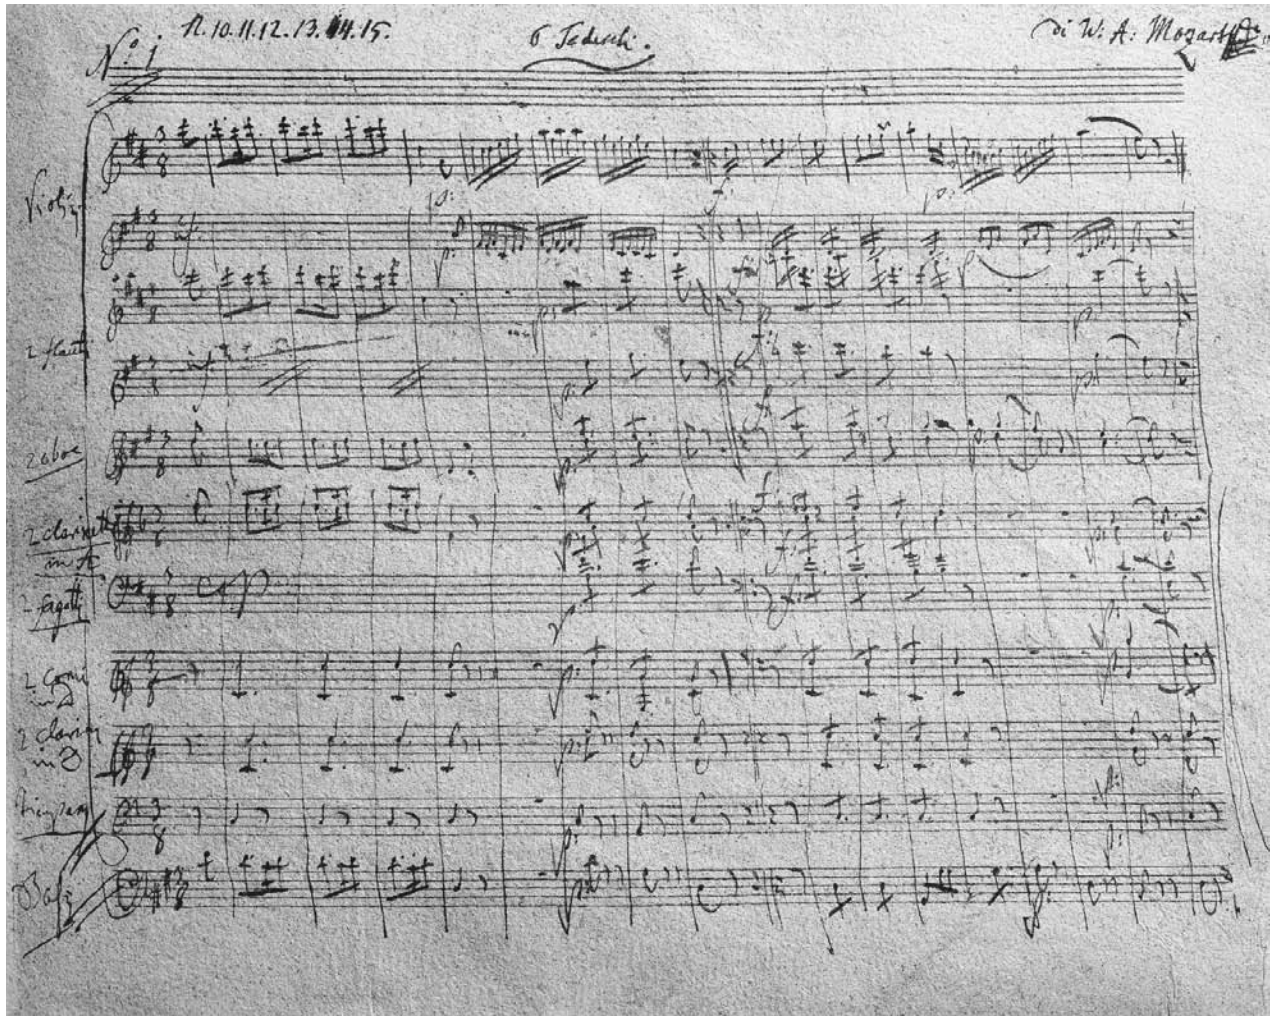 N.º 1 n. 10. 11. 12. 13. 14. 15. 6 Tedeschi. di W: A: Mozart
Violini
2 flauti
2 oboe
2 clarinetti
in A
2 fagotti
2 Corni
in D
2 clarini
in D
Timpani
Bassi